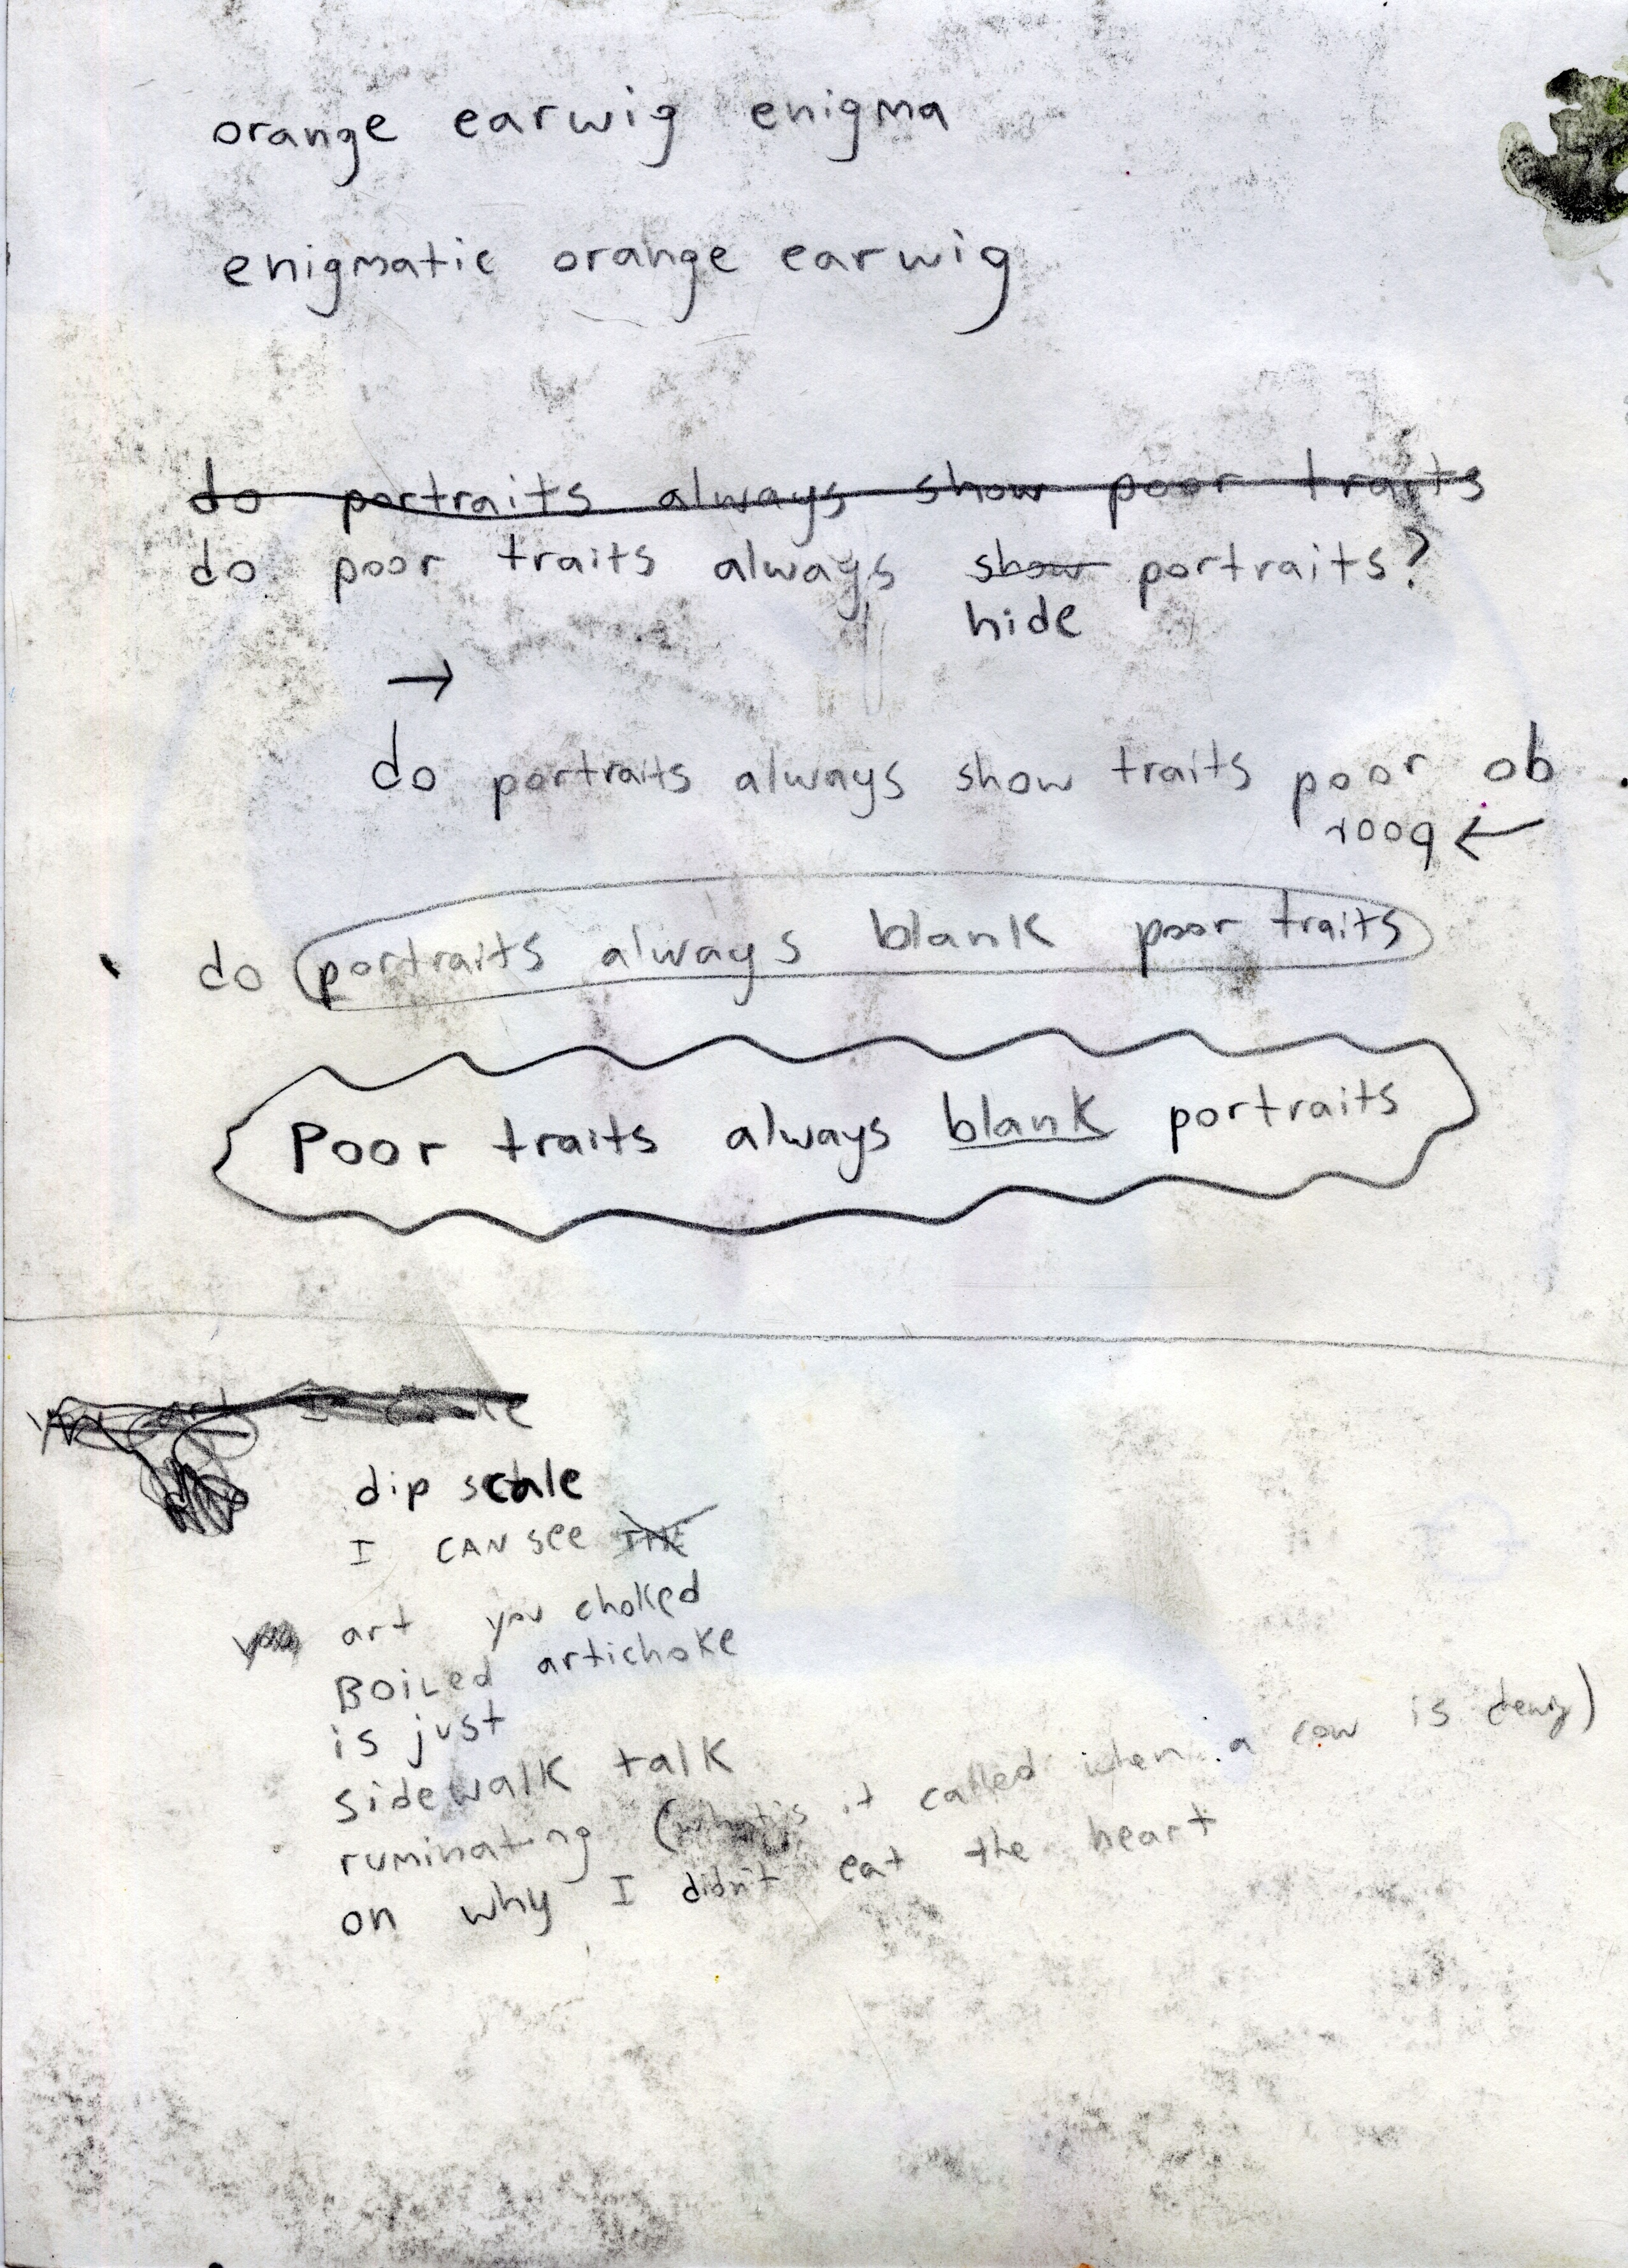 orange earwig enigma
enigmatic orange earwig
do portraits always show poor traits
do poor traits always show portraits?
hide
→
do portraits always show traits poor ob
roop ←
do portraits always blank poor traits
Poor traits always blank portraits
dip scale
I CAN see THE
art you choked
BOiLed artichoke
is just
sidewalk talk
ruminating (what's it called when a cow is
on why I didn't eat the heart